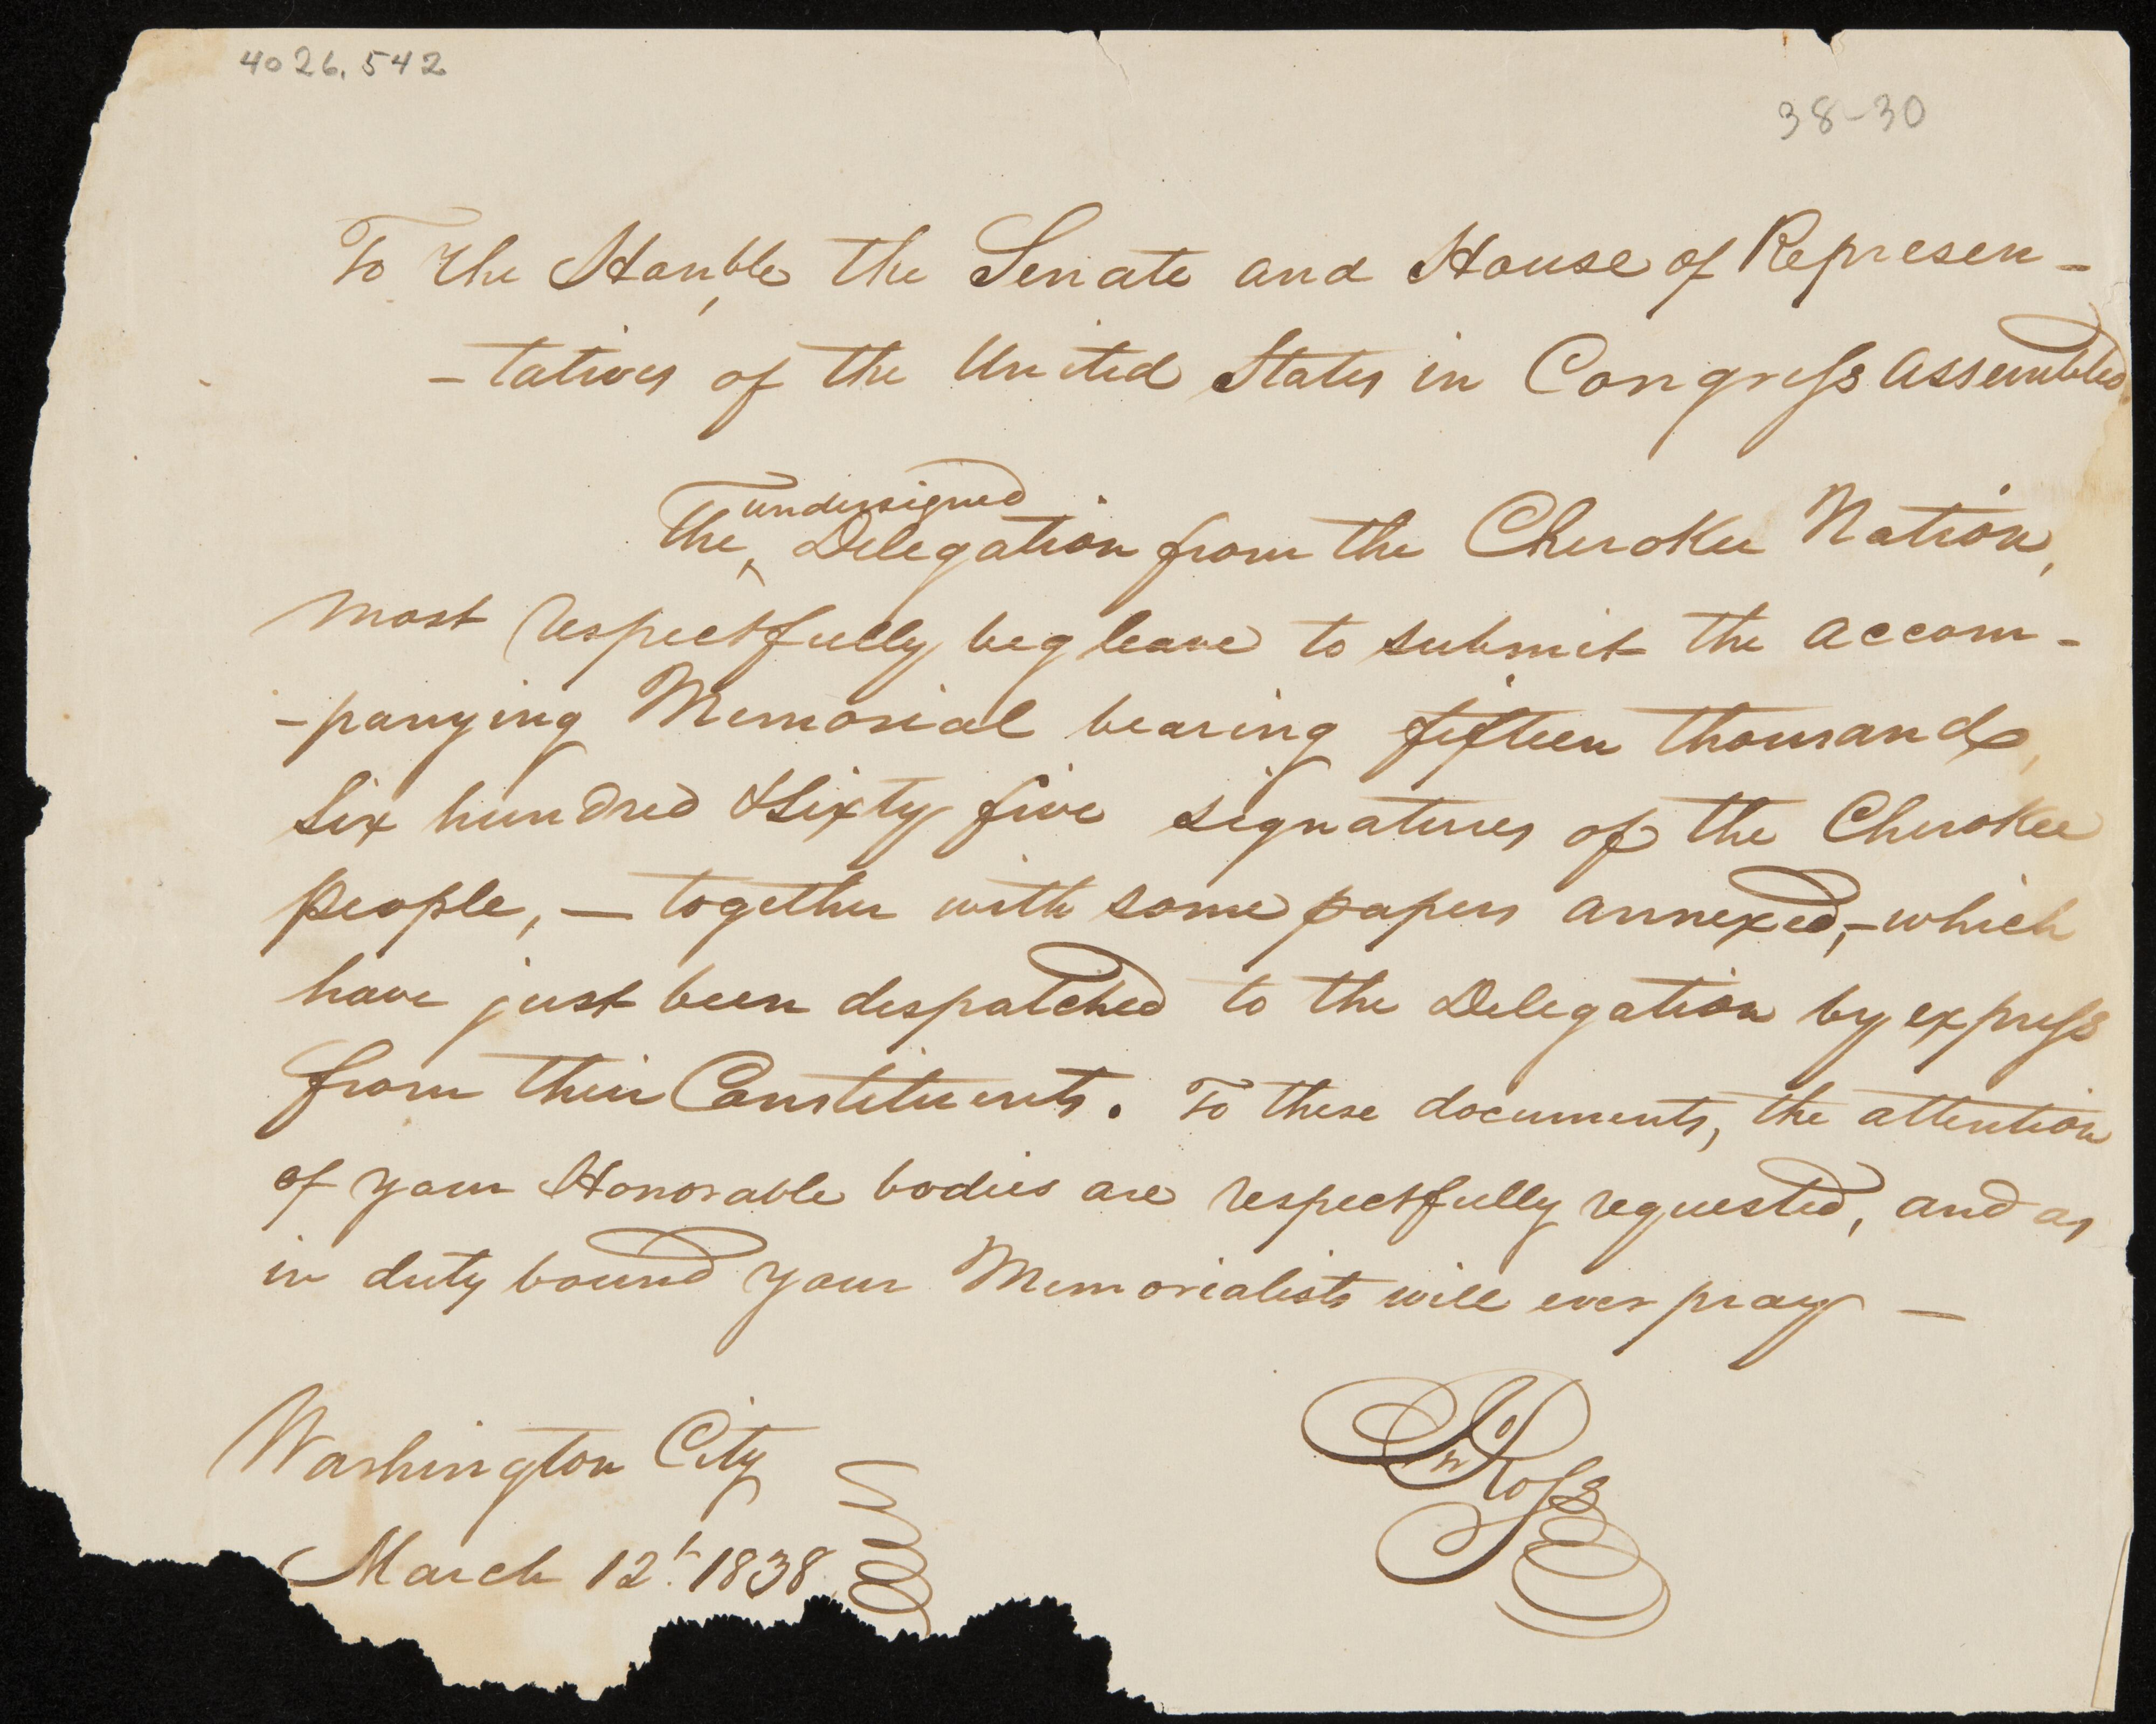 4026.542
38-30
To The Hon,ble the Senate and House of Represen-
-tatives of the United States in Congress assembled
undersigned
The ^ Delegation from the Cherokee Nation,
most respectfully beg leave to submit the accom-
-panying Memorial bearing fifteen thousand,
Six hundred & Sixty five signatures of the Cherokee
people, — together with some papers annexed, - which
have just been despatched to the Delegation by express
from their Constituents. To these documents, the attention
of your Honorable bodies are respectfully requested, and as
in duty bound your Memorialists will ever pray —
Washington City
March 12th 1838
Jno Ross